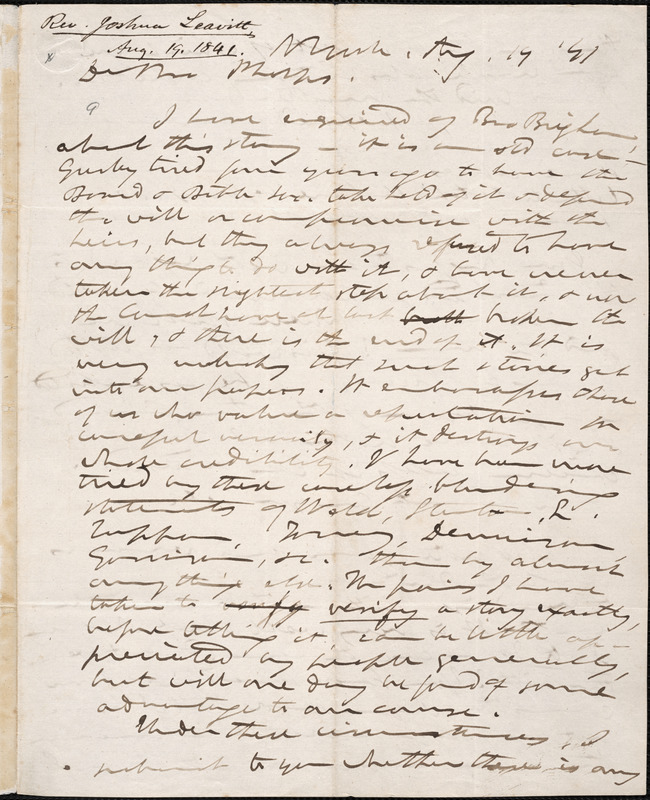 Rev. Joshua Leavitt,
Aug. 19. 1841.
N York. Aug. 19 '41
Dr Bro Phelps.
I have enquired of Bro Brigham
about this story - it is an old case -
tried four years ago to have the
Board & Bible Soc. take hold of it & defend
the will or compromise with the
heirs, but they always refused to have
any thing to do with it, & have never
taken the slightest step about it, & now
the Court have at last broken the
will, & there is the end of it. It is
very unlucky that such stories get
into our papers. It embarrasses those
of us who value a reputation for
careful veracity, & it destroys our
whole credibility. I have been more
tried by these careless blundering
statements of Weld, L.
Tappan, Torrey, Dennison,
Garrison, &c. than by almost
any thing else. The pains I have
taken to verify a story exactly,
before telling it, can be little ap-
preciated by people generally,
but will one day be found of some
advantage to our cause.
Under these circumstances, I
submit to you whether there is any